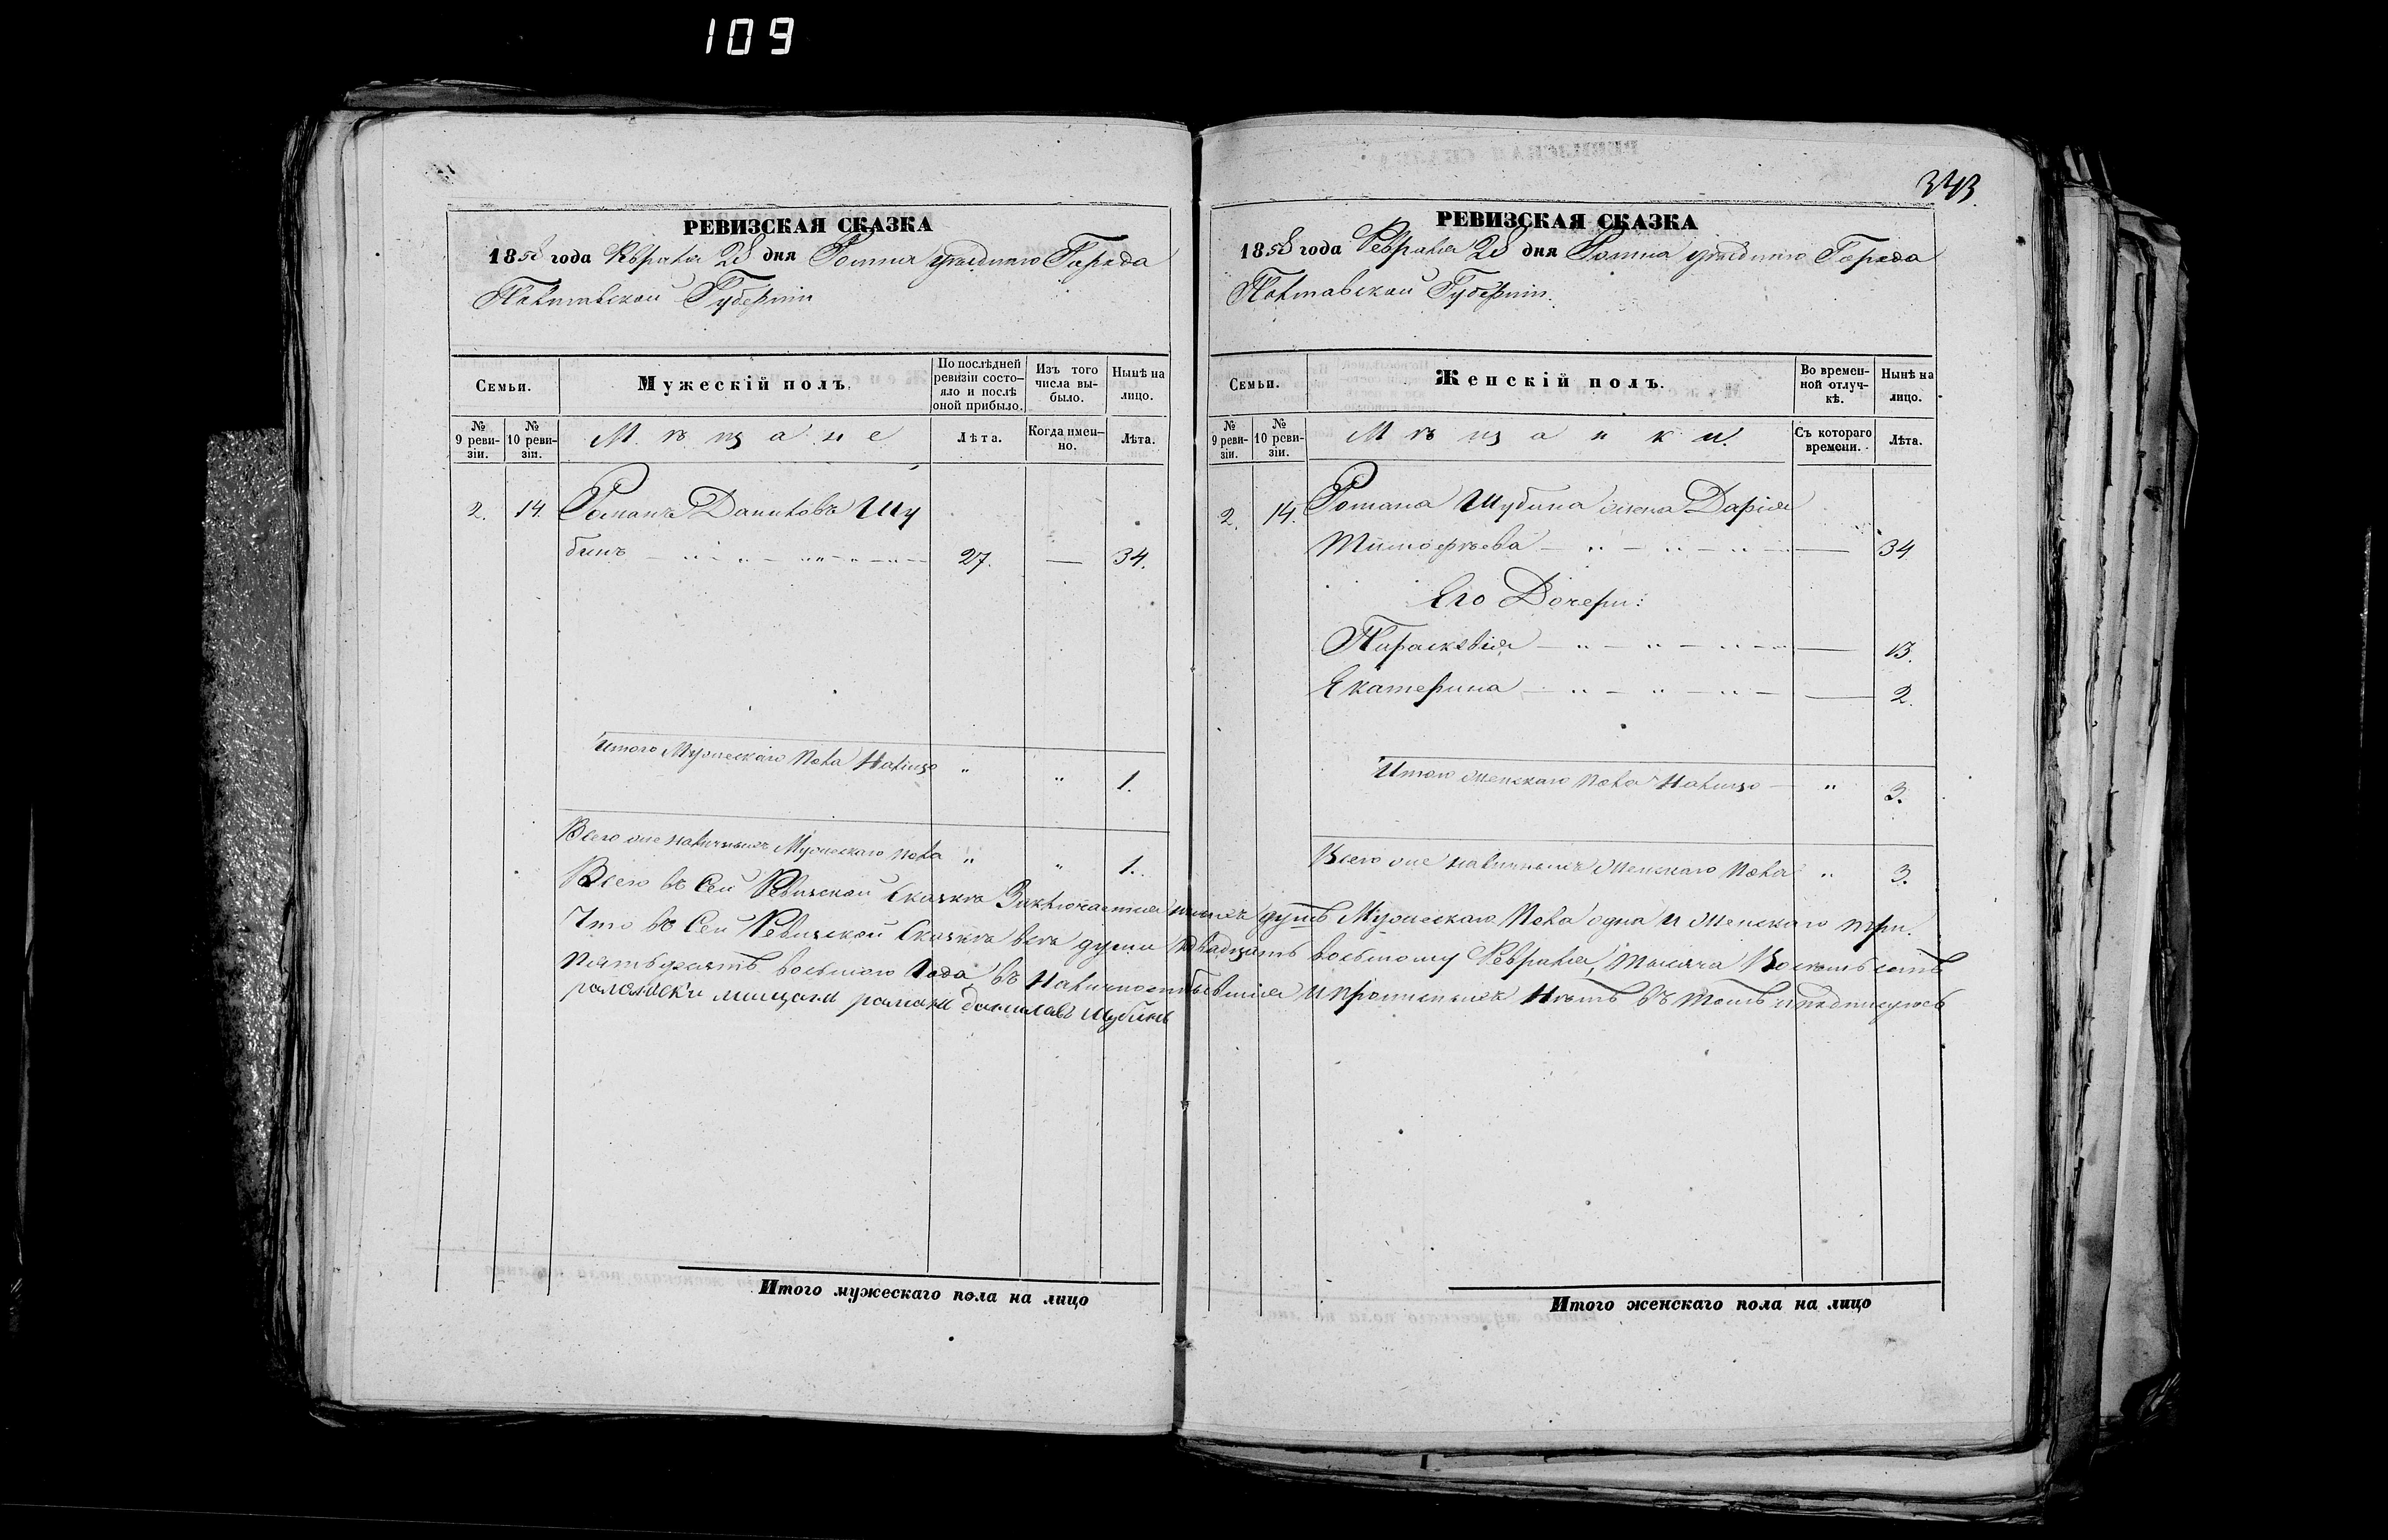 109
343
РЕВИЗСКАЯ СКАЗКА
1858 года Февраля 28 дня Ромна уѣзднаго Города
Полтавской Губерніи
Семьи.
Мужескій полъ.
По послѣдней ревизіи состояло и послѣ оной прибыло.
Изъ того числа выбыло.
Нынѣ на лицо.
№ 9 ревизіи.
№ 10 ревизіи.
Мѣщане
Лѣта.
Когда именно.
Лѣта.
2. 14. Романъ Даниловъ Шу
бинъ 27. — 34.
Итого Мужескаго Пола Налицо " " 1.
Всего же наличныхъ Мужескаго пола " " 1.
РЕВИЗСКАЯ СКАЗКА
1858 года Февраля 28 дня Ромна уѣзднаго Города
Полтавской Губерніи.
Семьи.
Женскій полъ.
Во временной отлучкѣ.
Нынѣ на лицо.
№ 9 ревизіи.
№ 10 ревизіи.
Мѣщанки.
Съ котораго времени.
Лѣта.
2. 14. Романа Шубина жена Дарія
Тимофѣева — 34
Его Дочери:
Параскевія — 13.
Екатерина — 2.
Итого женскаго пола Налицо " 3.
Всего же наличныхъ Женскаго Пола " 3.
Всего въ Сей Ревизской Сказкѣ Заключается душъ Мужескаго Пола одна и Женскаго три.
Что въ Сей Ревизской Сказкѣ всѣ души двадцать восьмому Февраля, тысяча Восемьсотъ
пятьдесятъ восьмого Года, въ Наличности и прописныхъ Нѣтъ въ томъ и подписуюсь
мищани романъ данилавъ шубинъ
Итого мужескаго пола на лицо
Итого женскаго пола на лицо